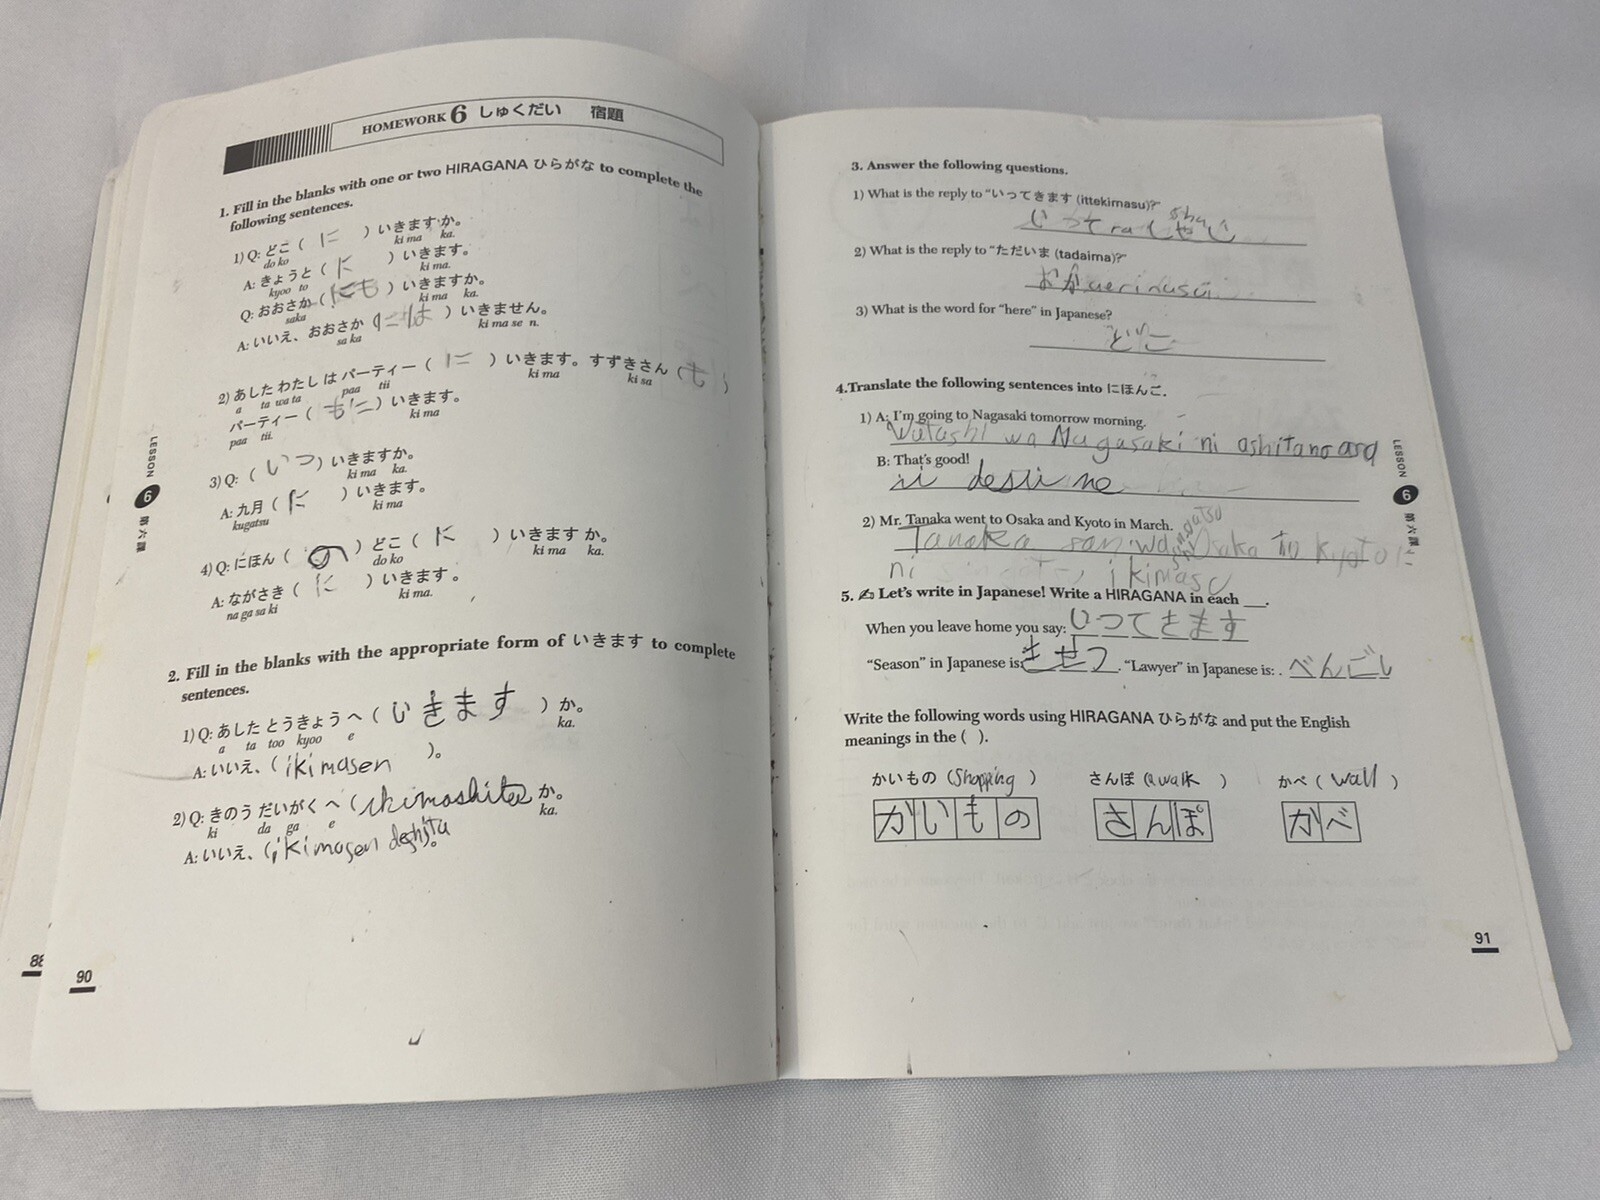 HOMEWORK 6 しゅくだい 宿題
1. Fill in the blanks with one or two HIRAGANA ひらがな to complete the
following sentences.
1) Q: どこ ( に ) いきますか。
do ko ki ma ka.
A: きょうと ( に ) いきます。
kyoo to ki ma.
Q: おおさか ( にも ) いきますか。
saka ki ma ka.
A: いいえ、おおさか ( には ) いきません。
sa ka ki ma se n.
2) あした わたし は パーティー ( に ) いきます。すずきさん ( も )
a ta wa ta paa tii ki ma ki sa
パーティー ( もに ) いきます。
paa tii. ki ma
3) Q: ( いつ ) いきますか。
ki ma ka.
A: 九月 ( に ) いきます。
kugatsu ki ma
4) Q: にほん ( の ) どこ ( に ) いきます か。
do ko ki ma ka.
A: ながさき ( に ) いきます。
na ga sa ki ki ma.
2. Fill in the blanks with the appropriate form of いきます to complete
sentences.
1) Q: あした とうきょう へ ( いきます ) か。
a ta too kyoo e ka.
A: いいえ、( ikimasen )。
2) Q: きのう だいがく へ ( ikimashita か。
ki da ga e ka.
A: いいえ、( ikimasen deshita )。
LESSON 6 第六課
88
90
3. Answer the following questions.
1) What is the reply to “いってきます (ittekimasu)?”
sha
いってraしゃい
2) What is the reply to “ただいま (tadaima)?”
おかaerinasai
3) What is the word for “here” in Japanese?
どこ
4.Translate the following sentences into にほんご.
1) A: I’m going to Nagasaki tomorrow morning.
Watashi wa Nagasaki ni ashitano asa
B: That’s good!
ii desu ne
2) Mr. Tanaka went to Osaka and Kyoto in March.
Tanaka san wa Osaka to kyoto に
ni ikimasu
5. ✍ Let’s write in Japanese! Write a HIRAGANA in each __.
When you leave home you say: いつてきます
“Season” in Japanese is: きせつ . “Lawyer” in Japanese is: . べんごし
Write the following words using HIRAGANA ひらがな and put the English
meanings in the ( ).
かいもの (Shopping ) さんぽ (a walk ) かべ ( wall )
かいもの さんぽ かべ
LESSON 6 第六課
91